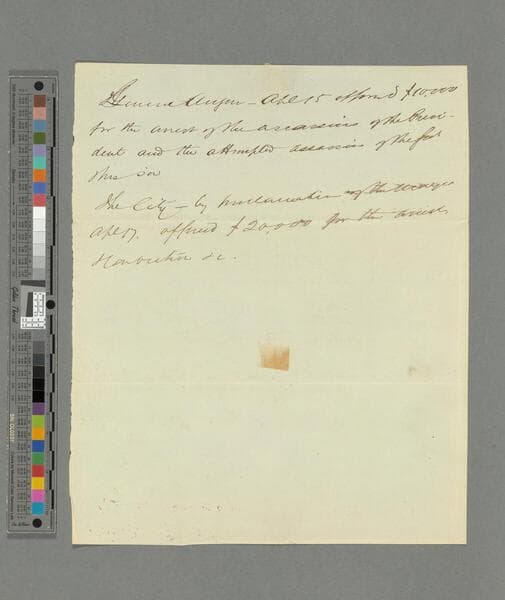 General Augur - Apl 15 offered $10,000
for the arrest of the assassins of the Presi-
dent and the attempted assassin of the
his son
The City - by proclamation of the
Apl 17. offered $20,000 for the arrest
&c.